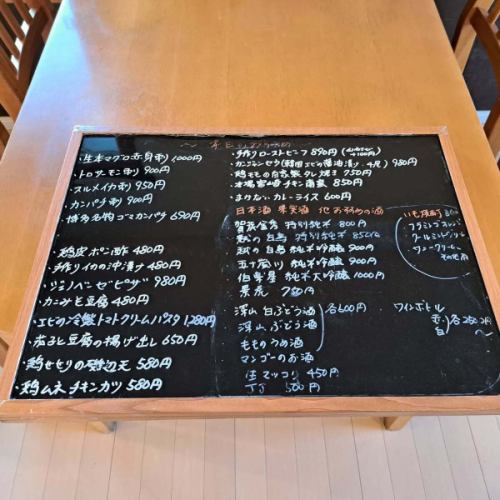 ～ 本日のおすすめ
・生本マグロ赤身刺 1000円
・トロサーモン刺 900円
・スルメイカ刺 950円
・カンパチ刺 900円
・博多名物ゴマカンパチ 690円
・鶏皮ポン酢 480円
・手作りイカの沖漬け 480円
・ジェノベーゼピザ 980円
・カニみそ豆腐 480円
・エビの冷製トマトクリームパスタ 1280円
・茄子と豆腐の揚げ出し 650円
・鶏せせりの磯辺天 580円
・鶏ムネチキンカツ 580円
・手作りローストビーフ 890円
・カンジャンセウ(韓国エビの醤油漬け・4尾) 980円
・鶏ももの自家製タレ焼き 750円
・本場宮崎チキン南蛮 850円
・まかないカレーライス 600円
日本酒 果実酒 他おすすめの酒
賀茂金秀 特別純米 800円
越の白鳥 特別純米 850円
越の白鳥 純米吟醸 900円
五十嵐川 純米吟醸 900円
伯楽星 純米大吟醸 1000円
景虎 780円
深山 白ぶどう酒
深山 ぶどう酒
もものうめ酒
マンゴーのお酒
各600円
生マッコリ 450円
JJ 500円
いも焼酎
フラミンゴオレンジ
クールミントグリーン
ワインボトル
赤
白
各2500円
～